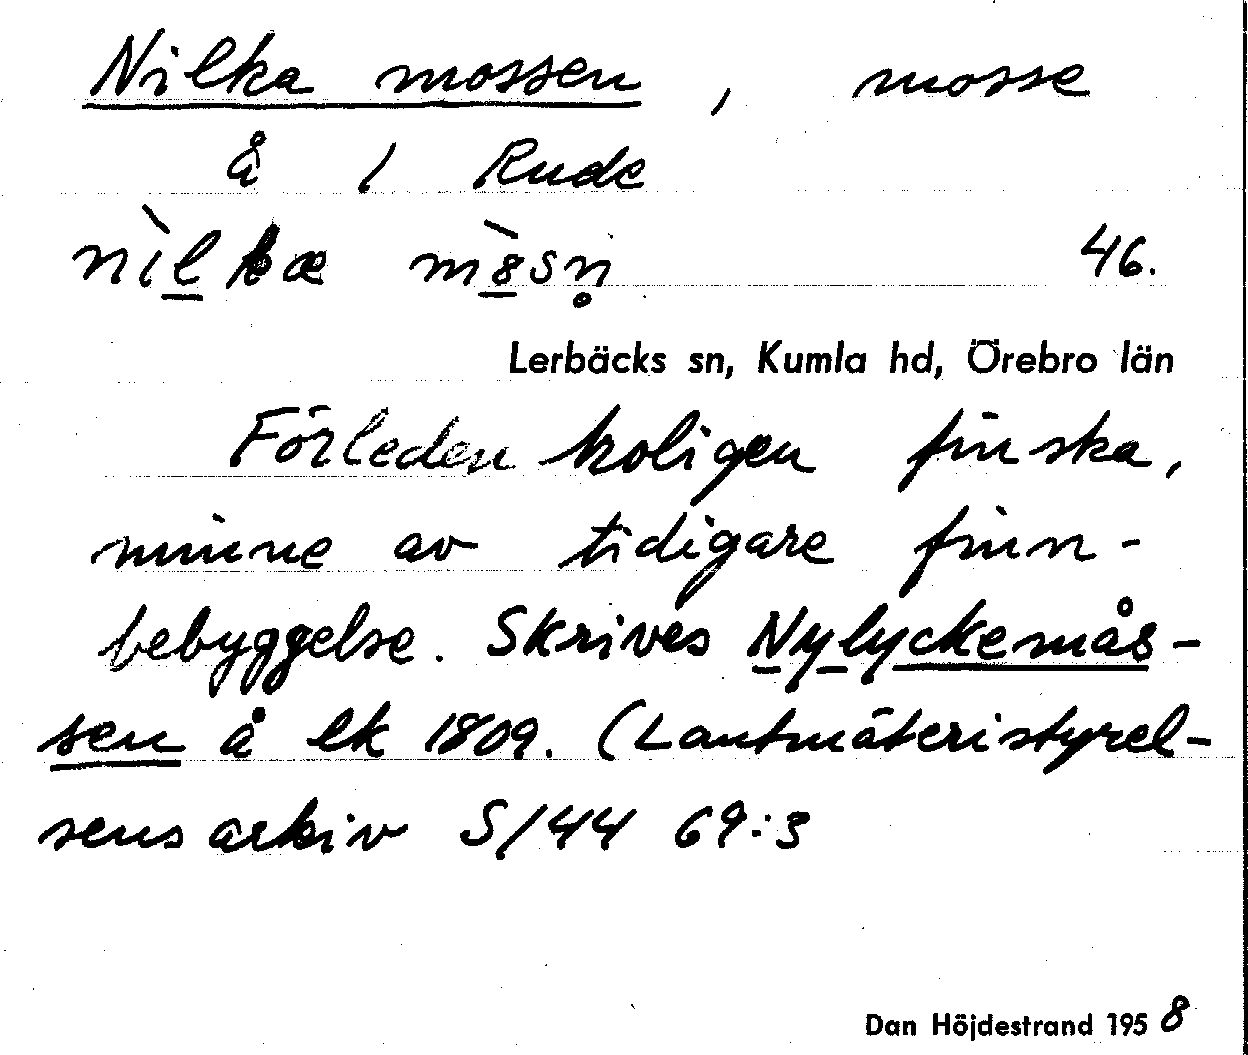 Nilka mossen, mosse
å 1 Rude
nìlkæ mò̱sn̥ 46.
Lerbäcks sn, Kumla hd, Örebro län
Förleden troligen finska,
minne av tidigare finn-
bebyggelse. Skrives Nylyckemås-
sen å ek 1809. (Lantmäteristyrel-
sens arkiv S/44 69:3
Dan Höjdestrand 1958